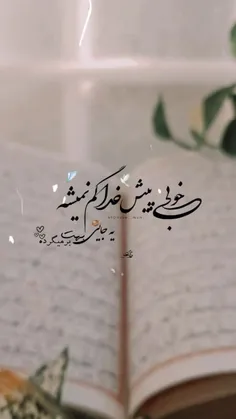 خوبی پیش خدا گم نمیشه
یه جایی بهت برمیگرده